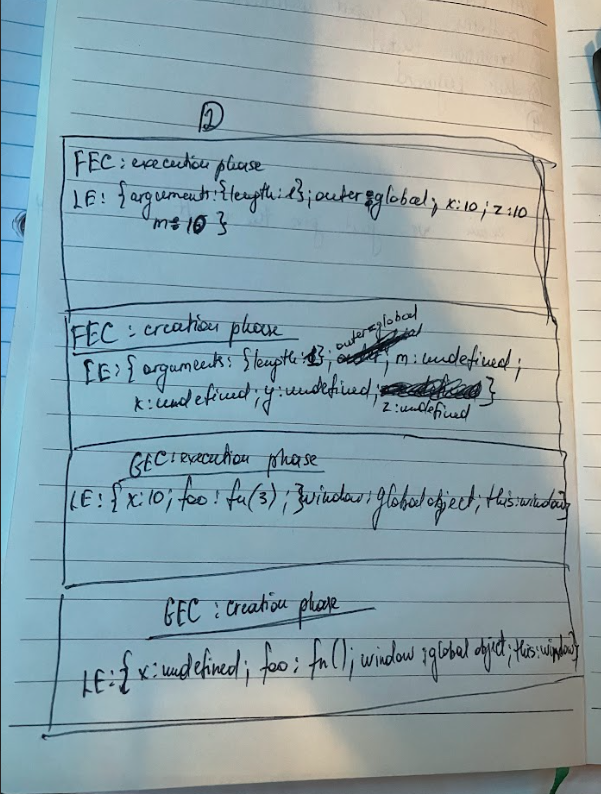 2
FEC : execution phase
LE: {arguments: {length: 1}; outer=global; x:10; z:10
m=10 }
FEC : creation phase
outer=global
LE: { arguments: {length: 1}; ; m: undefined;
x: undefined; y: undefined; }
z: undefined
GEC: execution phase
LE: { x:10; foo: fn(3); } window: global object; this: window}
GEC : creation phase
LE: { x: undefined; foo: fn(); window : global object; this: window}